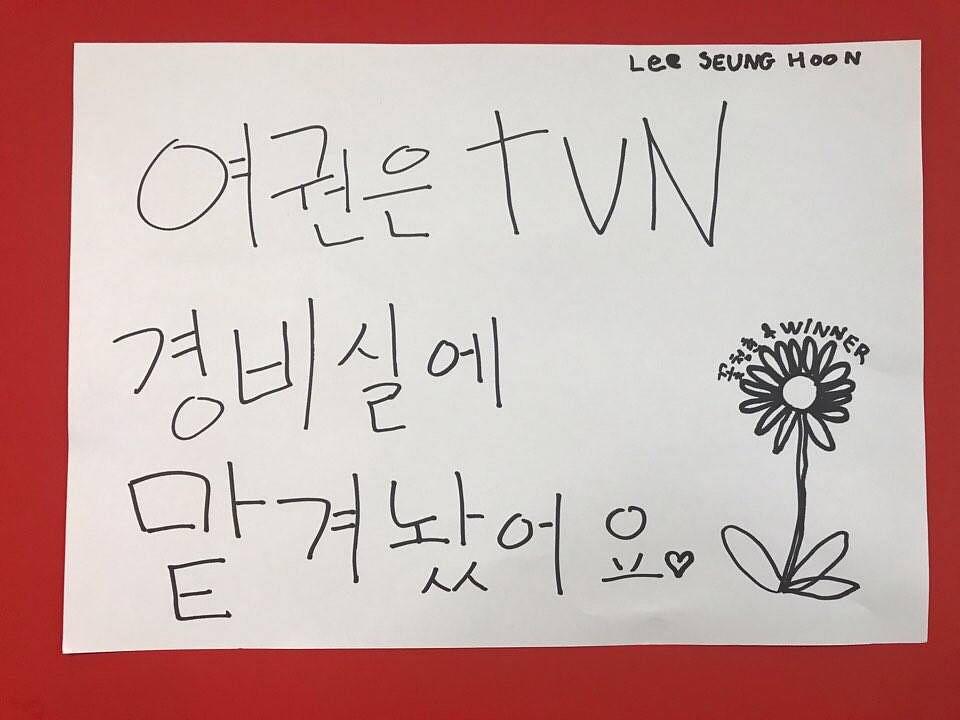 Lee SEUNG HOON
여권은 tVN
경비실에
맡겨놨어요♡
꽃청춘 & WINNER